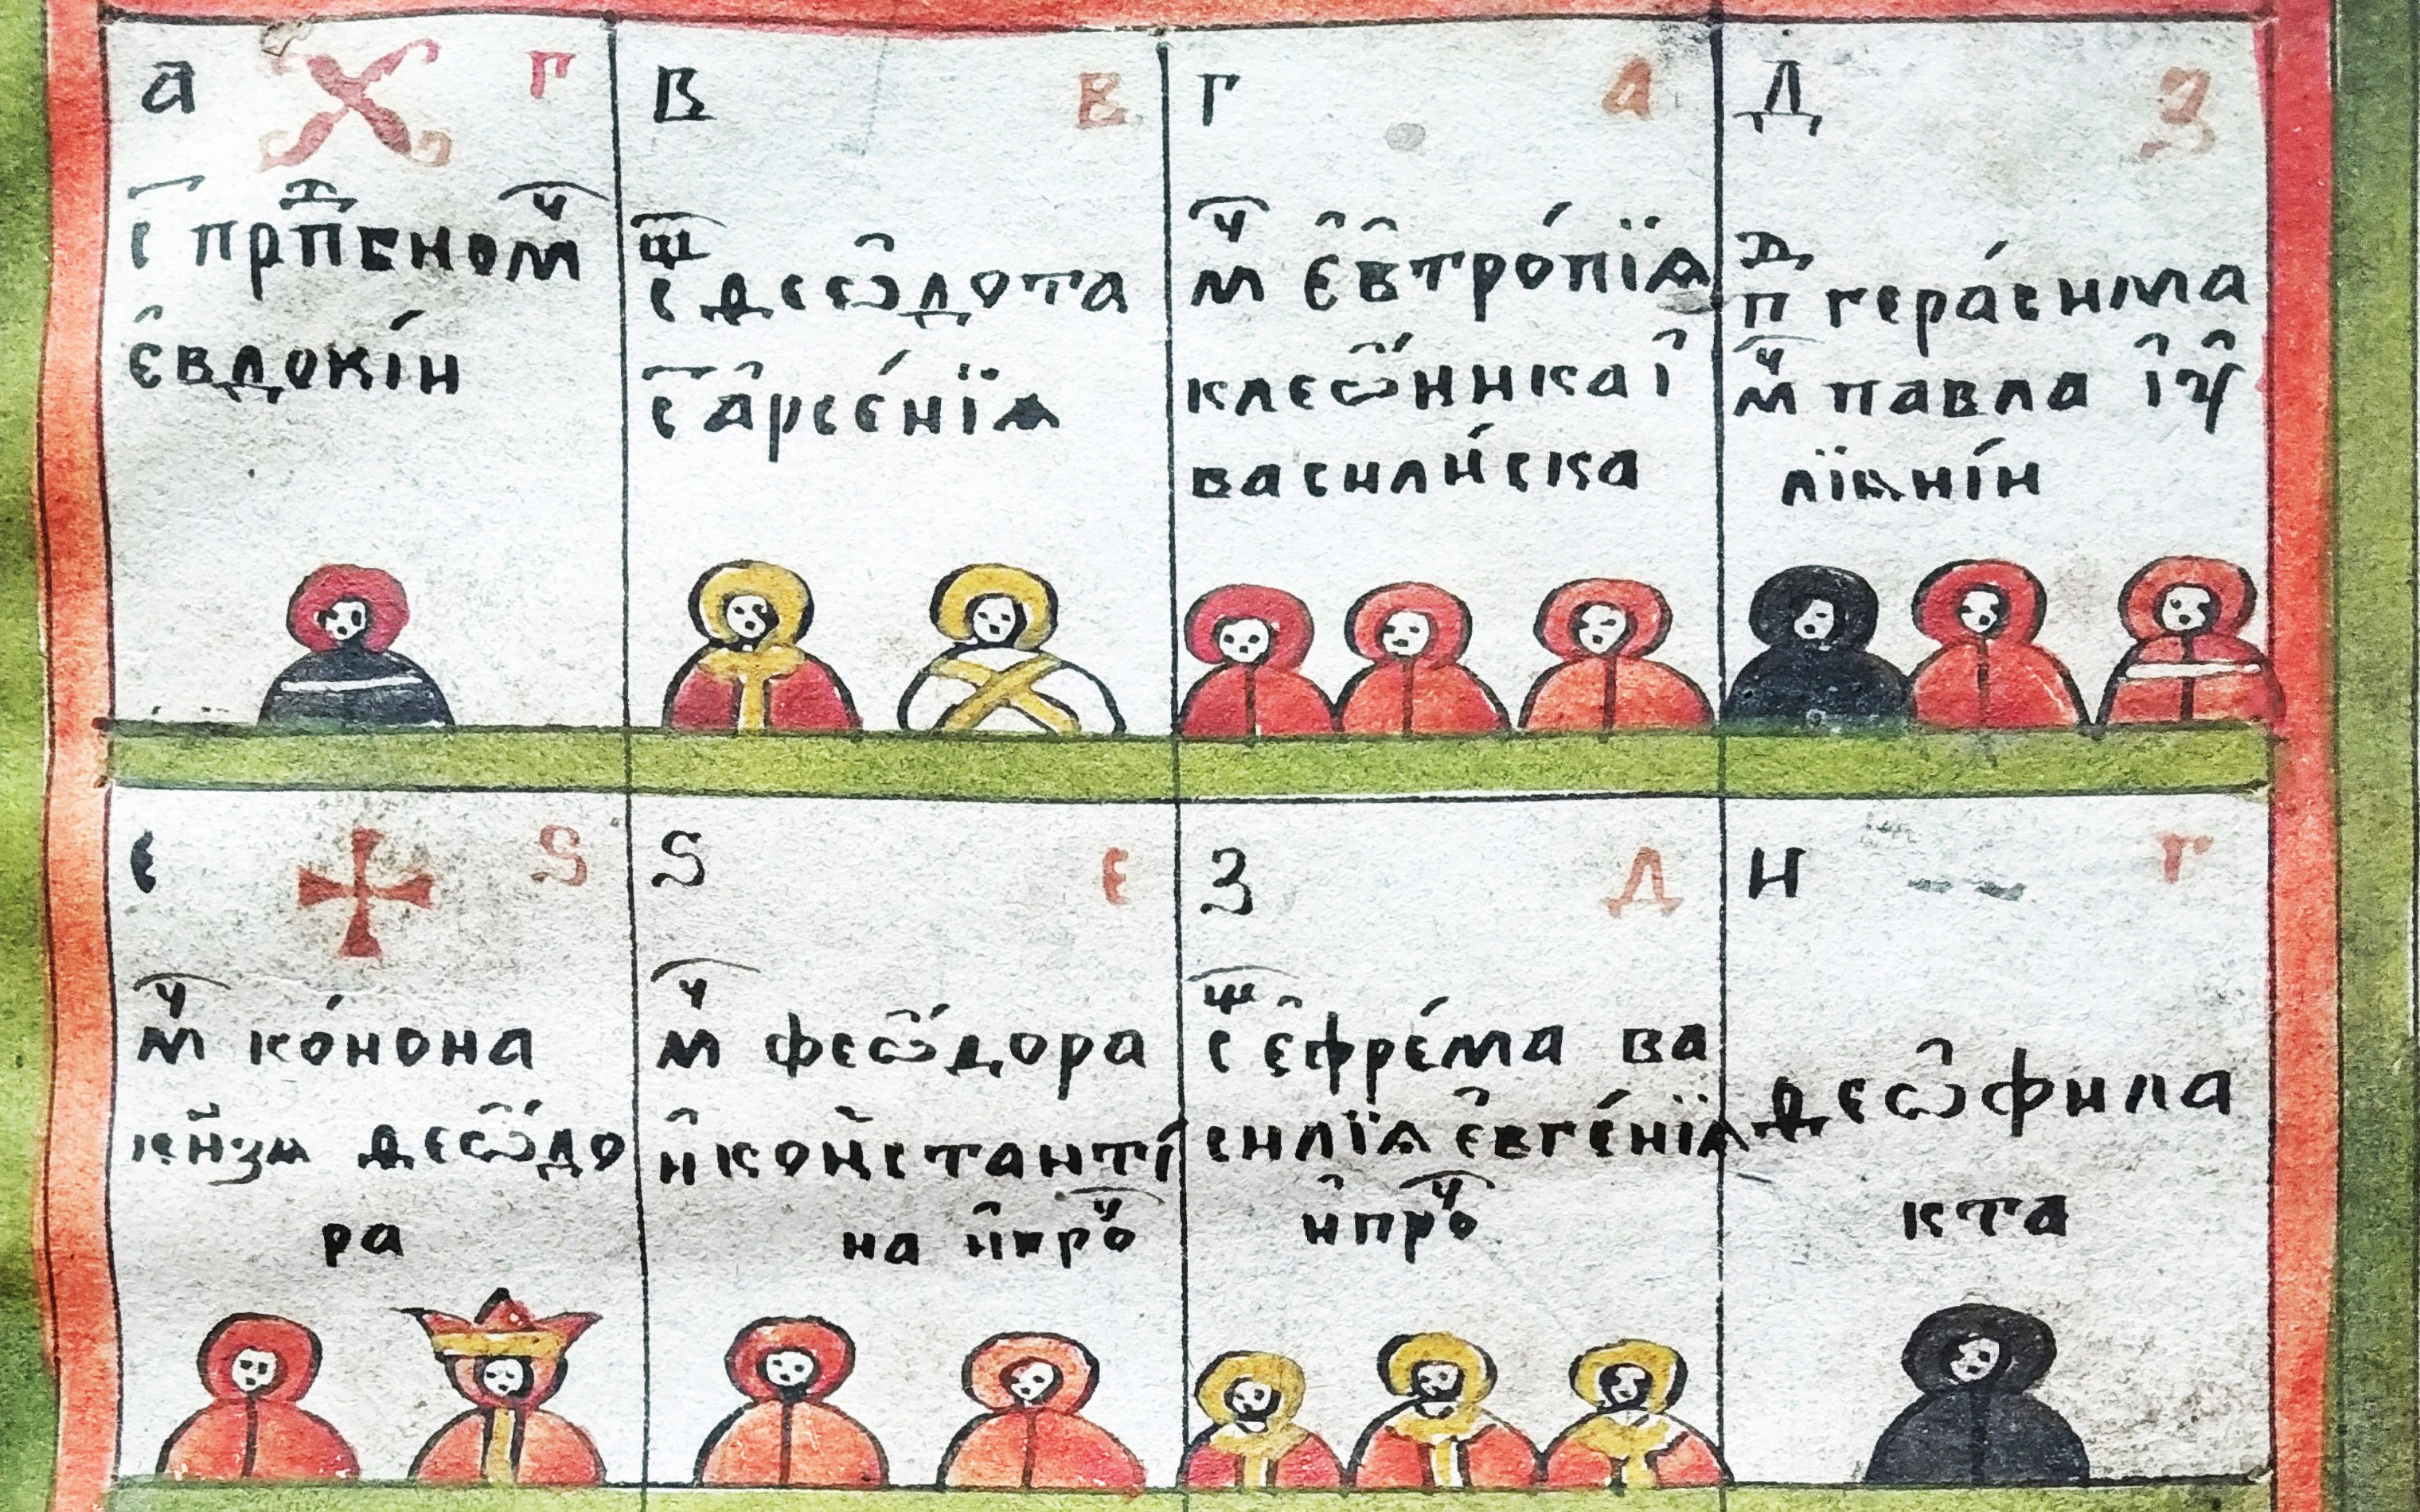 а г
с прпⷣбном ч
є҆вдокі́и
в в
сщ҃ ѳеѡ҆дота
с а҆рсе́нїѧ
г а
мч҃ є҆ѵ҆тро́пїѧ
клеѡ́ника і҆
васили́ска
д з
пⷣ гера́сима
мч҃ павла і҆ ꙋ҆
лїѧні́и
є ѕ
мч҃ ко́нона
кн҃зѧ ѳеѡ́до
ра
ѕ є
мч҃ феѡ́дора
и҆ константі́
на и҆ про́ч
з д
сщ҃ є҆фре́ма ва
силїѧ є҆вге́нїѧ
и҆ проч
и г
ѳеѡ҆фила
кта